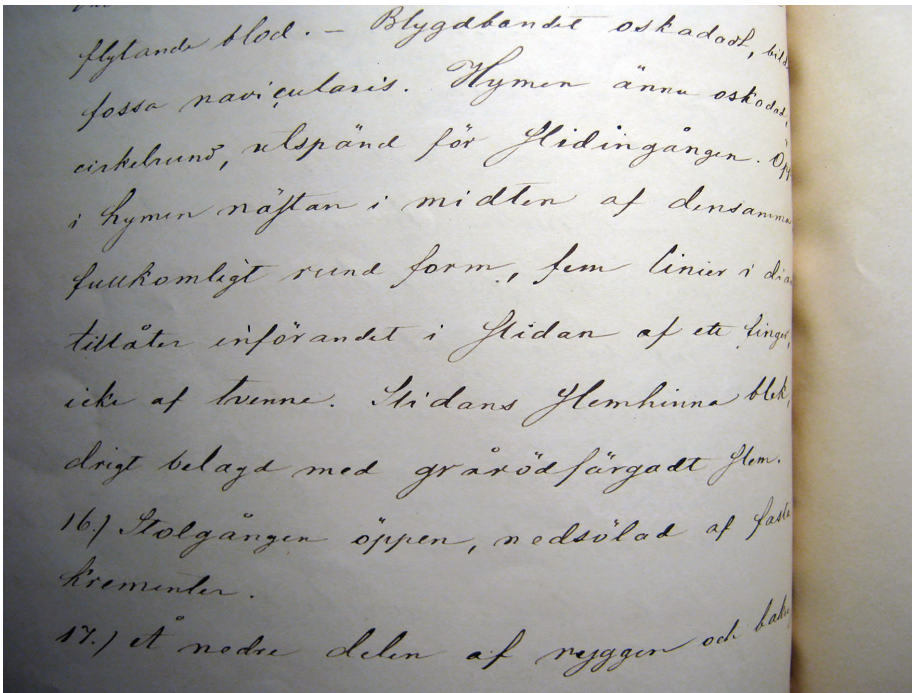 flytande blod. – Blygdbandet oskadadt, bild
fossa navicularis. Hymen ännu oskadad,
cirkelrund, utspänd för slidingången. Öpp
i hymen nästan i midten af densamma
fullkomligt rund form, fem linier i dia
tillåter införandet i slidan af ett finger,
icke af tvenne. Slidans slemhinna blek,
drigt belagd med grårödfärgadt slem.
16.) Stolgången öppen, nedsölad af fasta
krementer.
17.) Å nedre delen af ryggen och bak